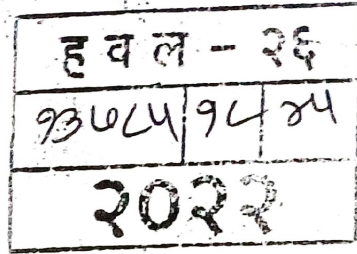 हवल - २६
१३७८५ १८ २५
२०२२